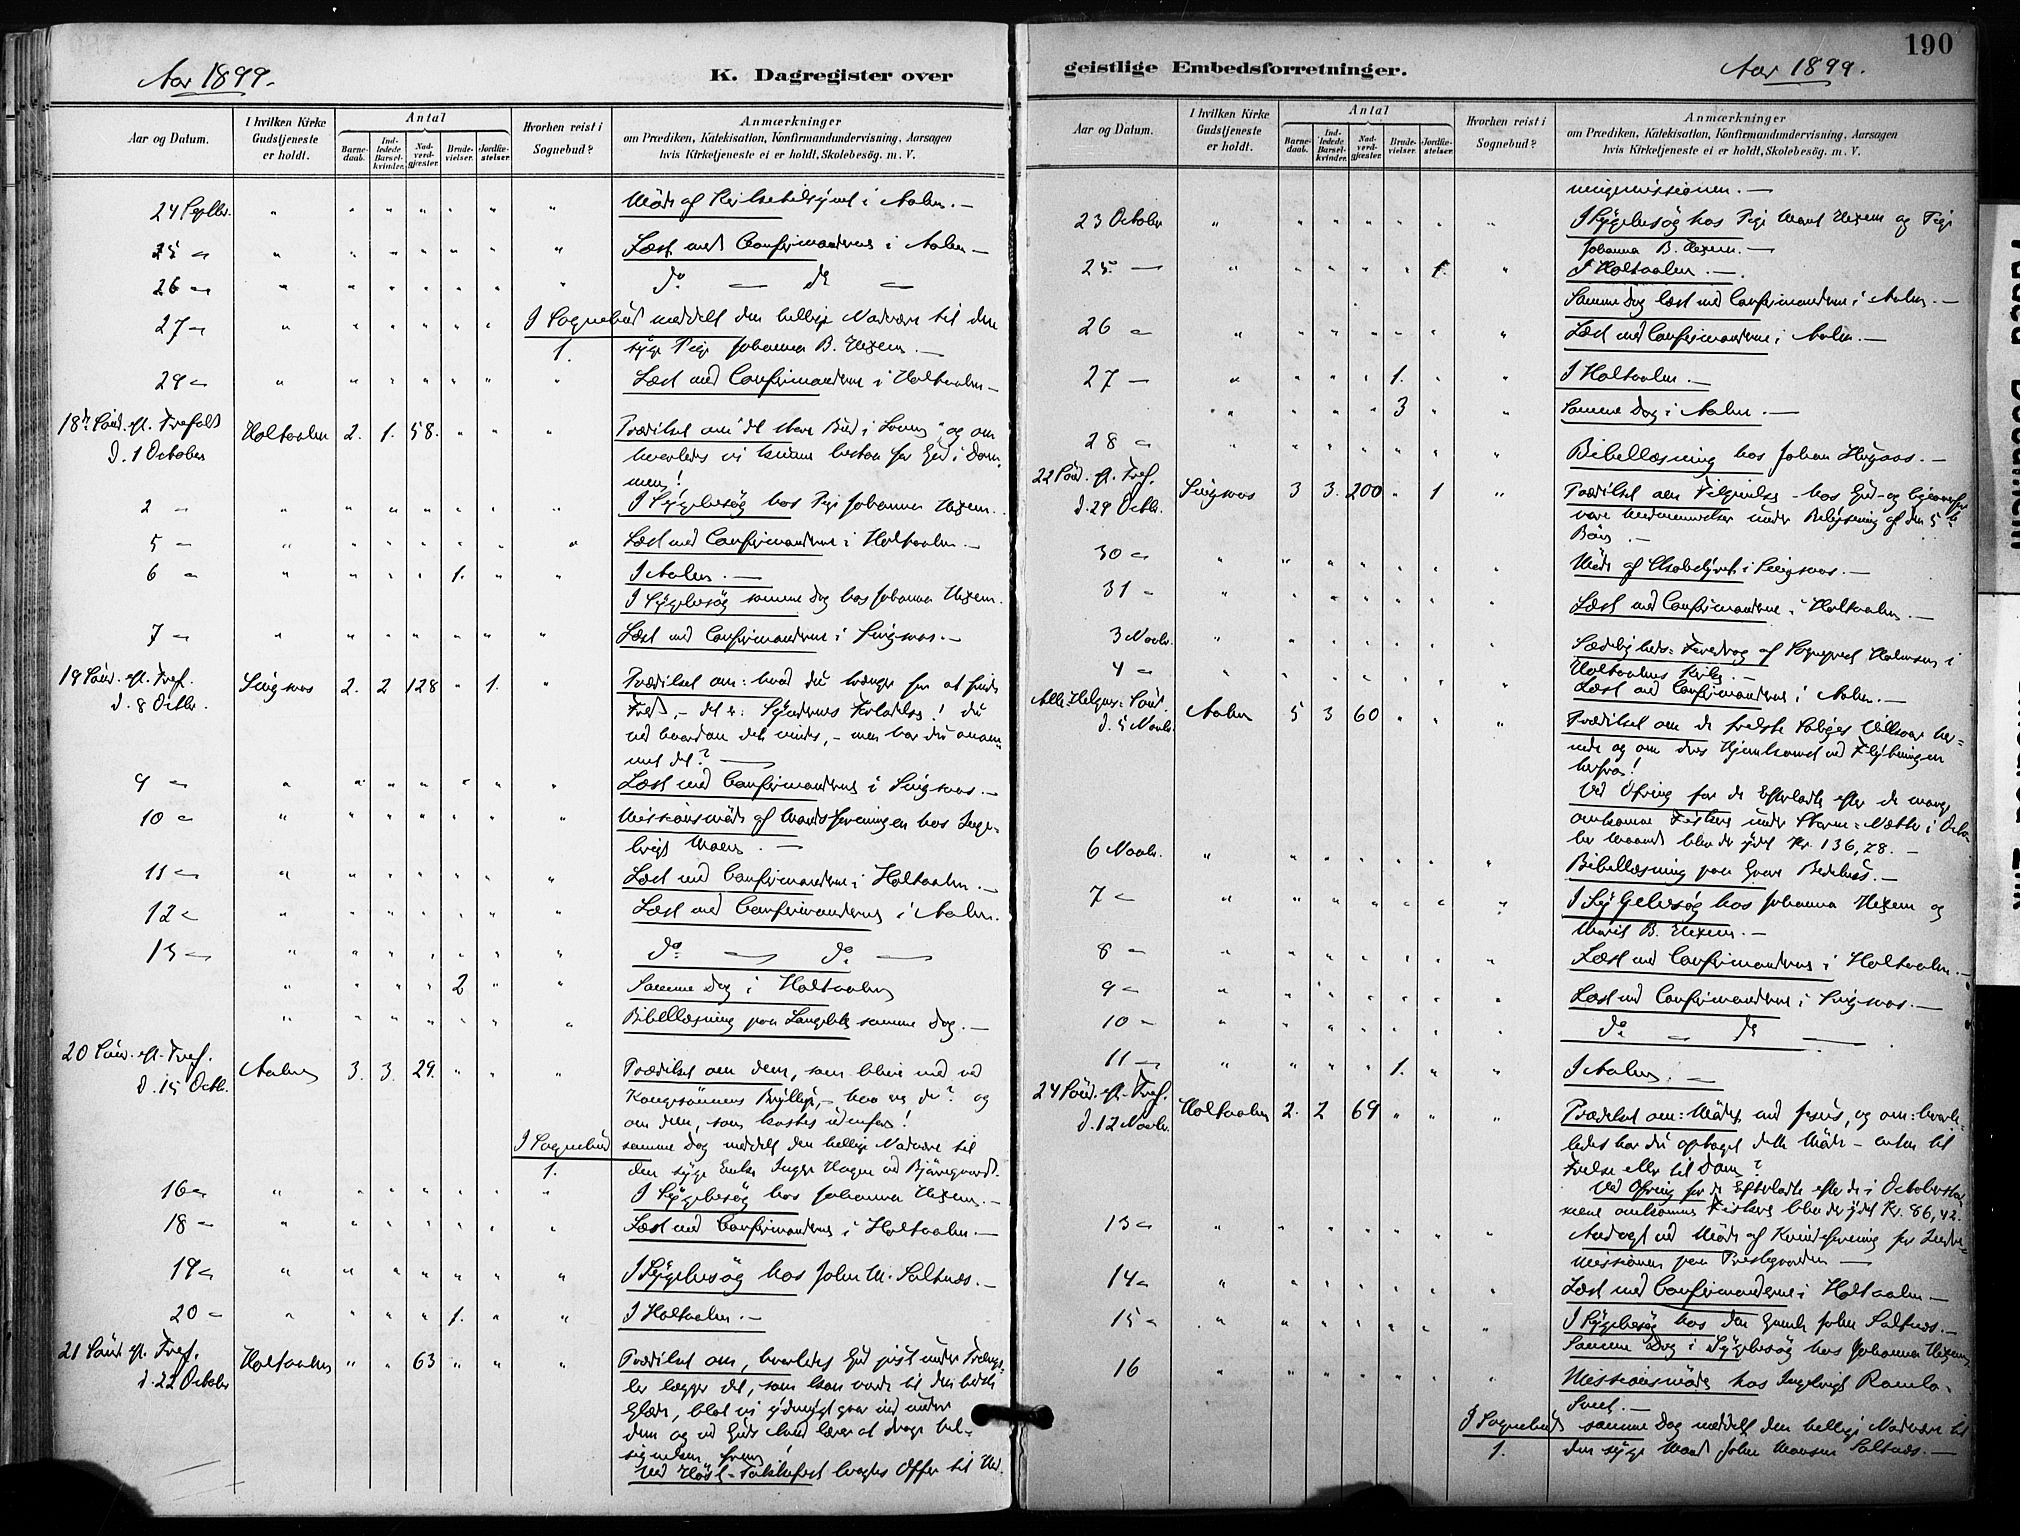 Aar 1899.
K. Dagregister over
Aar og Datum.
I hvilken Kirke Gudstjeneste er holdt.
Antal
Barnedaab.
Indledede Barselkvinder.
Nadverdgjester.
Brudevielser.
Jordfæstelser.
Hvorhen reist i Sognebud?
Anmærkninger
om Prædiken, Katekisation, Konfirmandundervisning, Aarsagen
hvis Kirketjeneste ei er holdt, Skolebesög. m. V.
24 Septbr. " " " " " " " Möde af i Aalen. —
25 " " " " " " " Læst med Confirmanderne i Aalen —
26 " " " " " " " do — do —
27 " " " " " " I Sognebud meddelt den hellige Nadvere til den
1. syge Pige Johanna B. Hexem. —
29 " " " " " " " Læst med Confirmanderne i Holtaalen —
18de Sönd. eft. Trefoldt
d. 1 October Holtaalen 2. 1. 58. " " " Prædiket om "det store Bud i Loven", og om
hvorledes vi kunne bestaa for Gud i Dom-
men!
2 " " " " " " " I Sygebesög hos Pige Johanna Hexem.
5 " " " " " " " Læst med Confirmanderne i Holtaalen. —
6 " " " " 1. " " I Aalen. —
I Sygebesög samme Dag hos Johanna Hexem.
7 " " " " " " " Læst med Confirmanderne i Singsaas. —
19 Sönd. eft. Tref.
d. 8 Octbr. Singsaas 2. 2 128 " 1. " Prædiket om: hvad du trænger for at finde
Fred, – det er: Syndernes Forladelse! du
ved hvordan det vindes, – men har du anam-
met det? —
9 " " " " " " " Læst med Confirmanderne i Singsaas. —
10 " " " " " " " Missionsmöde af Mandsforeningen hos Inge-
brigt Moen. —
11 " " " " " " " Læst med Confirmanderne i Holtaalen. —
12 " " " " " " " Læst med Confirmanderne i Aalen.
13 " " " " " " " do — do —
" " " " 2 " " Samme Dag i Holtaalen
" " " " " " " Bibellæsning paa samme Dag. —
20 Sönd. eft. Tref.
d. 15 Octbr. Aalen 3. 3. 29. " " " Prædiket om dem, som blive med ved
Kongesönnens Bryllup, – hvo er de? og
om dem, som kastes udenfor!
I Sognebud samme Dag meddelt den hellige Nadvere til
1. den syge Enke Hagen ved Bjørgaard.
16 " " " " " " " I Sygebesög hos Johanna Hexem. —
18 " " " " " " " Læst med Confirmanderne i Holtaalen. —
19 " " " " " " " I Sygebesög hos John M. Saltnes. —
20 " " " " 1. " " I Holtaalen. —
21 Sönd. eft. Tref.
d. 22 October Holtaalen " " 63 " " " Prædiket om, hvorledes Gud just under Trængs-
ler lægger det, som kan vorde til den bedste
Glæde, blot vi ydmygt gaar ind under
dem og ved Guds Aand lærer at drage Vel-
signelsen frem!
Ved Höst-Takkefest bragtes Offer til Hed-
geistlige Embedsforretninger.
Aar 1899.
190
Aar og Datum.
I hvilken Kirke Gudstjeneste er holdt.
Antal
Barnedaab.
Indledede Barselkvinder.
Nadverdgjester.
Brudevielser.
Jordfæstelser.
Hvorhen reist i Sognebud?
Anmærkninger
om Prædiken, Katekisation, Konfirmandundervisning, Aarsagen
hvis Kirketjeneste ei er holdt, Skolebesög. m. V.
ningemissionen. —
23 October " " " " " " " I Sygebesög hos Pige Marit Hexem og Pige
Johanna B. Hexem. —
25 — " " " " " 1. " I Holtaalen. —
Samme Dag læst med Confirmanderne i Aalen. —
26 " " " " " " " Læst med Confirmanderne i Aalen. —
27 — " " " " 1. " " I Holtaalen. —
" " " " 3 " " Samme Dag i Aalen. —
28 " " " " " " " Bibellæsning hos Johan Hugaas. —
22 Sönd. eft. Tref.
d. 29 Octbr. Singsaas 3 3. 200 " 1 " Prædiket om Tilgivelse – hos Gud – og ligeoverfor
vore Medmennesker under Belysning af den 5te
Bön. —
30 " " " " " " " Möde af i Singsaas. —
31 " " " " " " " Læst med Confirmanderne i Holtaalen. —
3 Novbr. " " " " " " " Sædeligheds-Foredrag af Sogneprest i
Holtaalens Kirke. —
4 " " " " " " " Læst med Confirmanderne i Aalen. —
Alle Helgens-Sönd.
d. 5 Novbr. Aalen 5 3 60 " " " Prædiket om de frelste Saliges Vilkaar her-
nede og om deres Hjemkomst ved Flytningen
herfra!
Ved Ofring for de Efterladte efter de mange
omkomne Fiskere under Storm-Natten i Octo-
ber Maaned blev der ydet Kr. 136,78. —
6 Novbr. " " " " " " " Bibellæsning paa Bedehus. —
7 " " " " " " " I Sygebesög hos Johanna Hexem og
Marit B. Hexem. —
8 " " " " " " " Læst med Confirmanderne i Holtaalen. —
9 " " " " " " " Læst med Confirmanderne i Singsaas. —
10 " " " " " " " do — do —
11 " " " " 1. " " I Aalen. —
24 Sönd. eft. Tref.
d. 12 Novbr. Holtaalen 2. 2 69 " " " Prædiket om: Mödet med Jesus, og om: hvor-
ledes har du optaget dette Möde – enten til
Frelse eller til Dom?
Ved Ofring for de Efterladte efter de i Octoberstor-
mene omkomne Fiskere blev der ydet Kr. 86,42.
13 " " " " " " " Andagt ved Möde af Kvindeforening for Indre-
missionen paa Prestegaarden —
14 " " " " " " " Læst med Confirmanderne i Holtaalen —
15 " " " " " " " I Sygebesög hos den gamle John Saltnes. —
Samme Dag i Sygebesög hos Johanna Hexem
16 " " " " " " " Missionsmöde hos Ingebrigt Ramlo-
I Sognebud samme Dag meddelt den hellige Nadvere til
1. den syge Mand John Monsen Saltnes. —